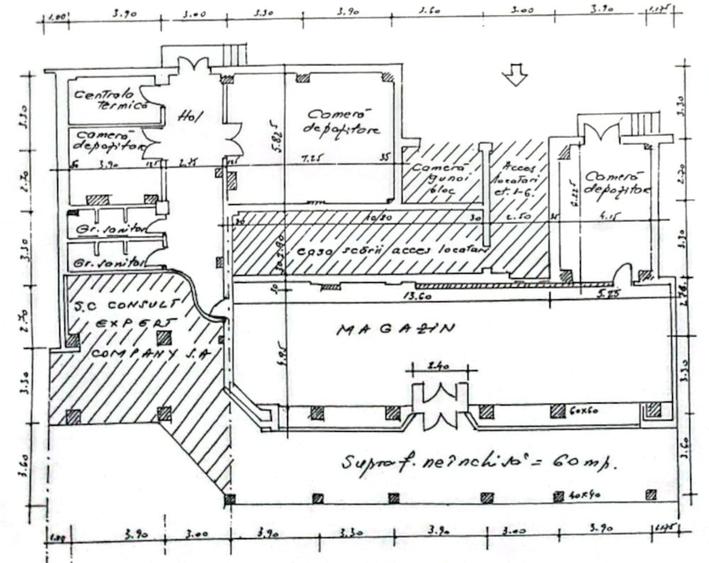 1.00 3.90 3.00 3.30 3.90 3.60 3.00 3.90 1.75
Centrala
Termică
Hol
Cameră
depozitare
5.825
Cameră
depozitare
3.90 2.75 7.25 35
Cameră
gunoi
bloc
Acces
locatari
et. 1-6.
Cameră
depozitare
4.15
Gr. sanitar
Gr. sanitar
10.80 30 2.50
casa scării acces locatari
S.C CONSULT
EXPERT
COMPANY S.A
13.60 5.25
MAGAZIN
4.95
2.40
60x60
Supraf. neînchisă = 60 mp.
40x40
3.30 2.70 3.30 2.70 3.30 3.60
3.30 2.70 3.30 3.30 3.60
1.00 3.90 3.00 3.90 3.30 3.90 3.00 3.90 1.75